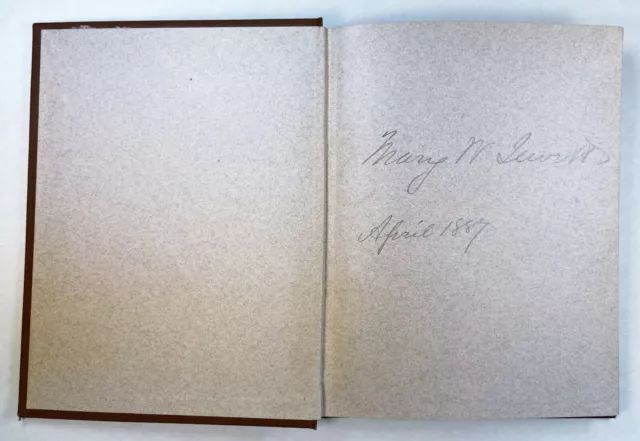 Mary W Jewett
April 1887